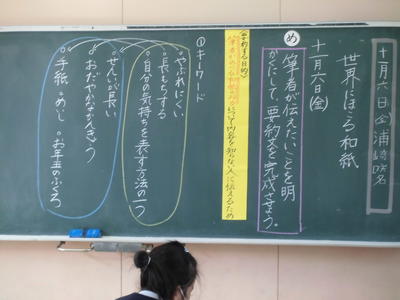 十一月六日(金)
世界にほこる和紙
十一月六日(金)
め
筆者が伝えたいことを明
かにして、要約文を完成させよう。
内容を知らない人に伝えるため
①キーワード
・やぶれにくい
・長もちする
・自分の気持ちを表す方法の一つ
せんいが長い
おだやかなかんきょう
・手紙 ・めいし ・お年玉のふくろ